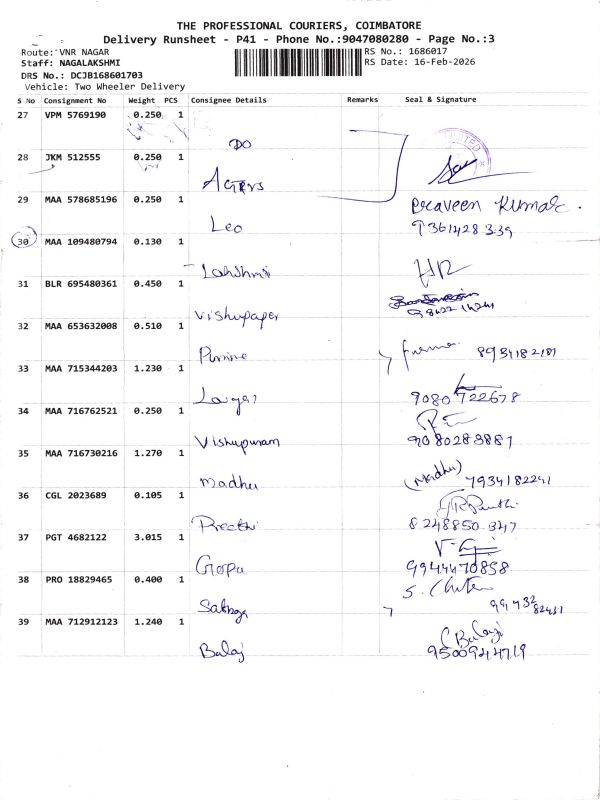 THE PROFESSIONAL COURIERS, COIMBATORE
Delivery Runsheet - P41 - Phone No.:9047080280 - Page No.:3
Route: VNR NAGAR
RS No.: 1686017
Staff: NAGALAKSHMI
RS Date: 16-Feb-2026
DRS No.: DCJB168601703
Vehicle: Two Wheeler Delivery
S No Consignment No Weight PCS Consignee Details Remarks Seal & Signature
27 VPM 5769190 0.250 1
DO
28 JKM 512555 0.250 1
29 MAA 578685196 0.250 1
Praveen Kumar.
Leo 9361428339
30 MAA 109480794 0.130 1
Lakshmi HR
31 BLR 695480361 0.450 1
Vishupaper
32 MAA 653632008 0.510 1
8939182181
33 MAA 715344203 1.230 1
9080722678
34 MAA 716762521 0.250 1
Vishupuram 9080283887
35 MAA 716730216 1.270 1
(Madhu)
Madhu 7934182241
36 CGL 2023689 0.105 1
Preethi 8248850347
37 PGT 4682122 3.015 1
Gopu 9944470858
38 PRO 18829465 0.400 1
39 MAA 712912123 1.240 1
C Balaji
Balaj 9500944719